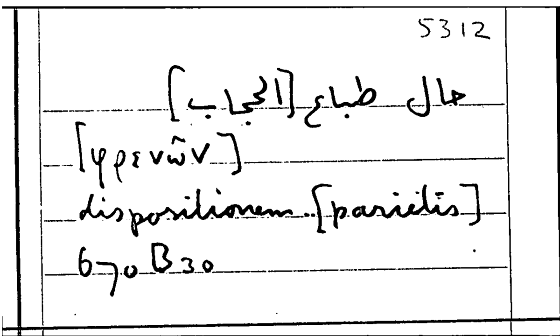 5312
حال طباع [الحجاب]
[φρενῶν]
dispositionem..[parietis]
670 B 30